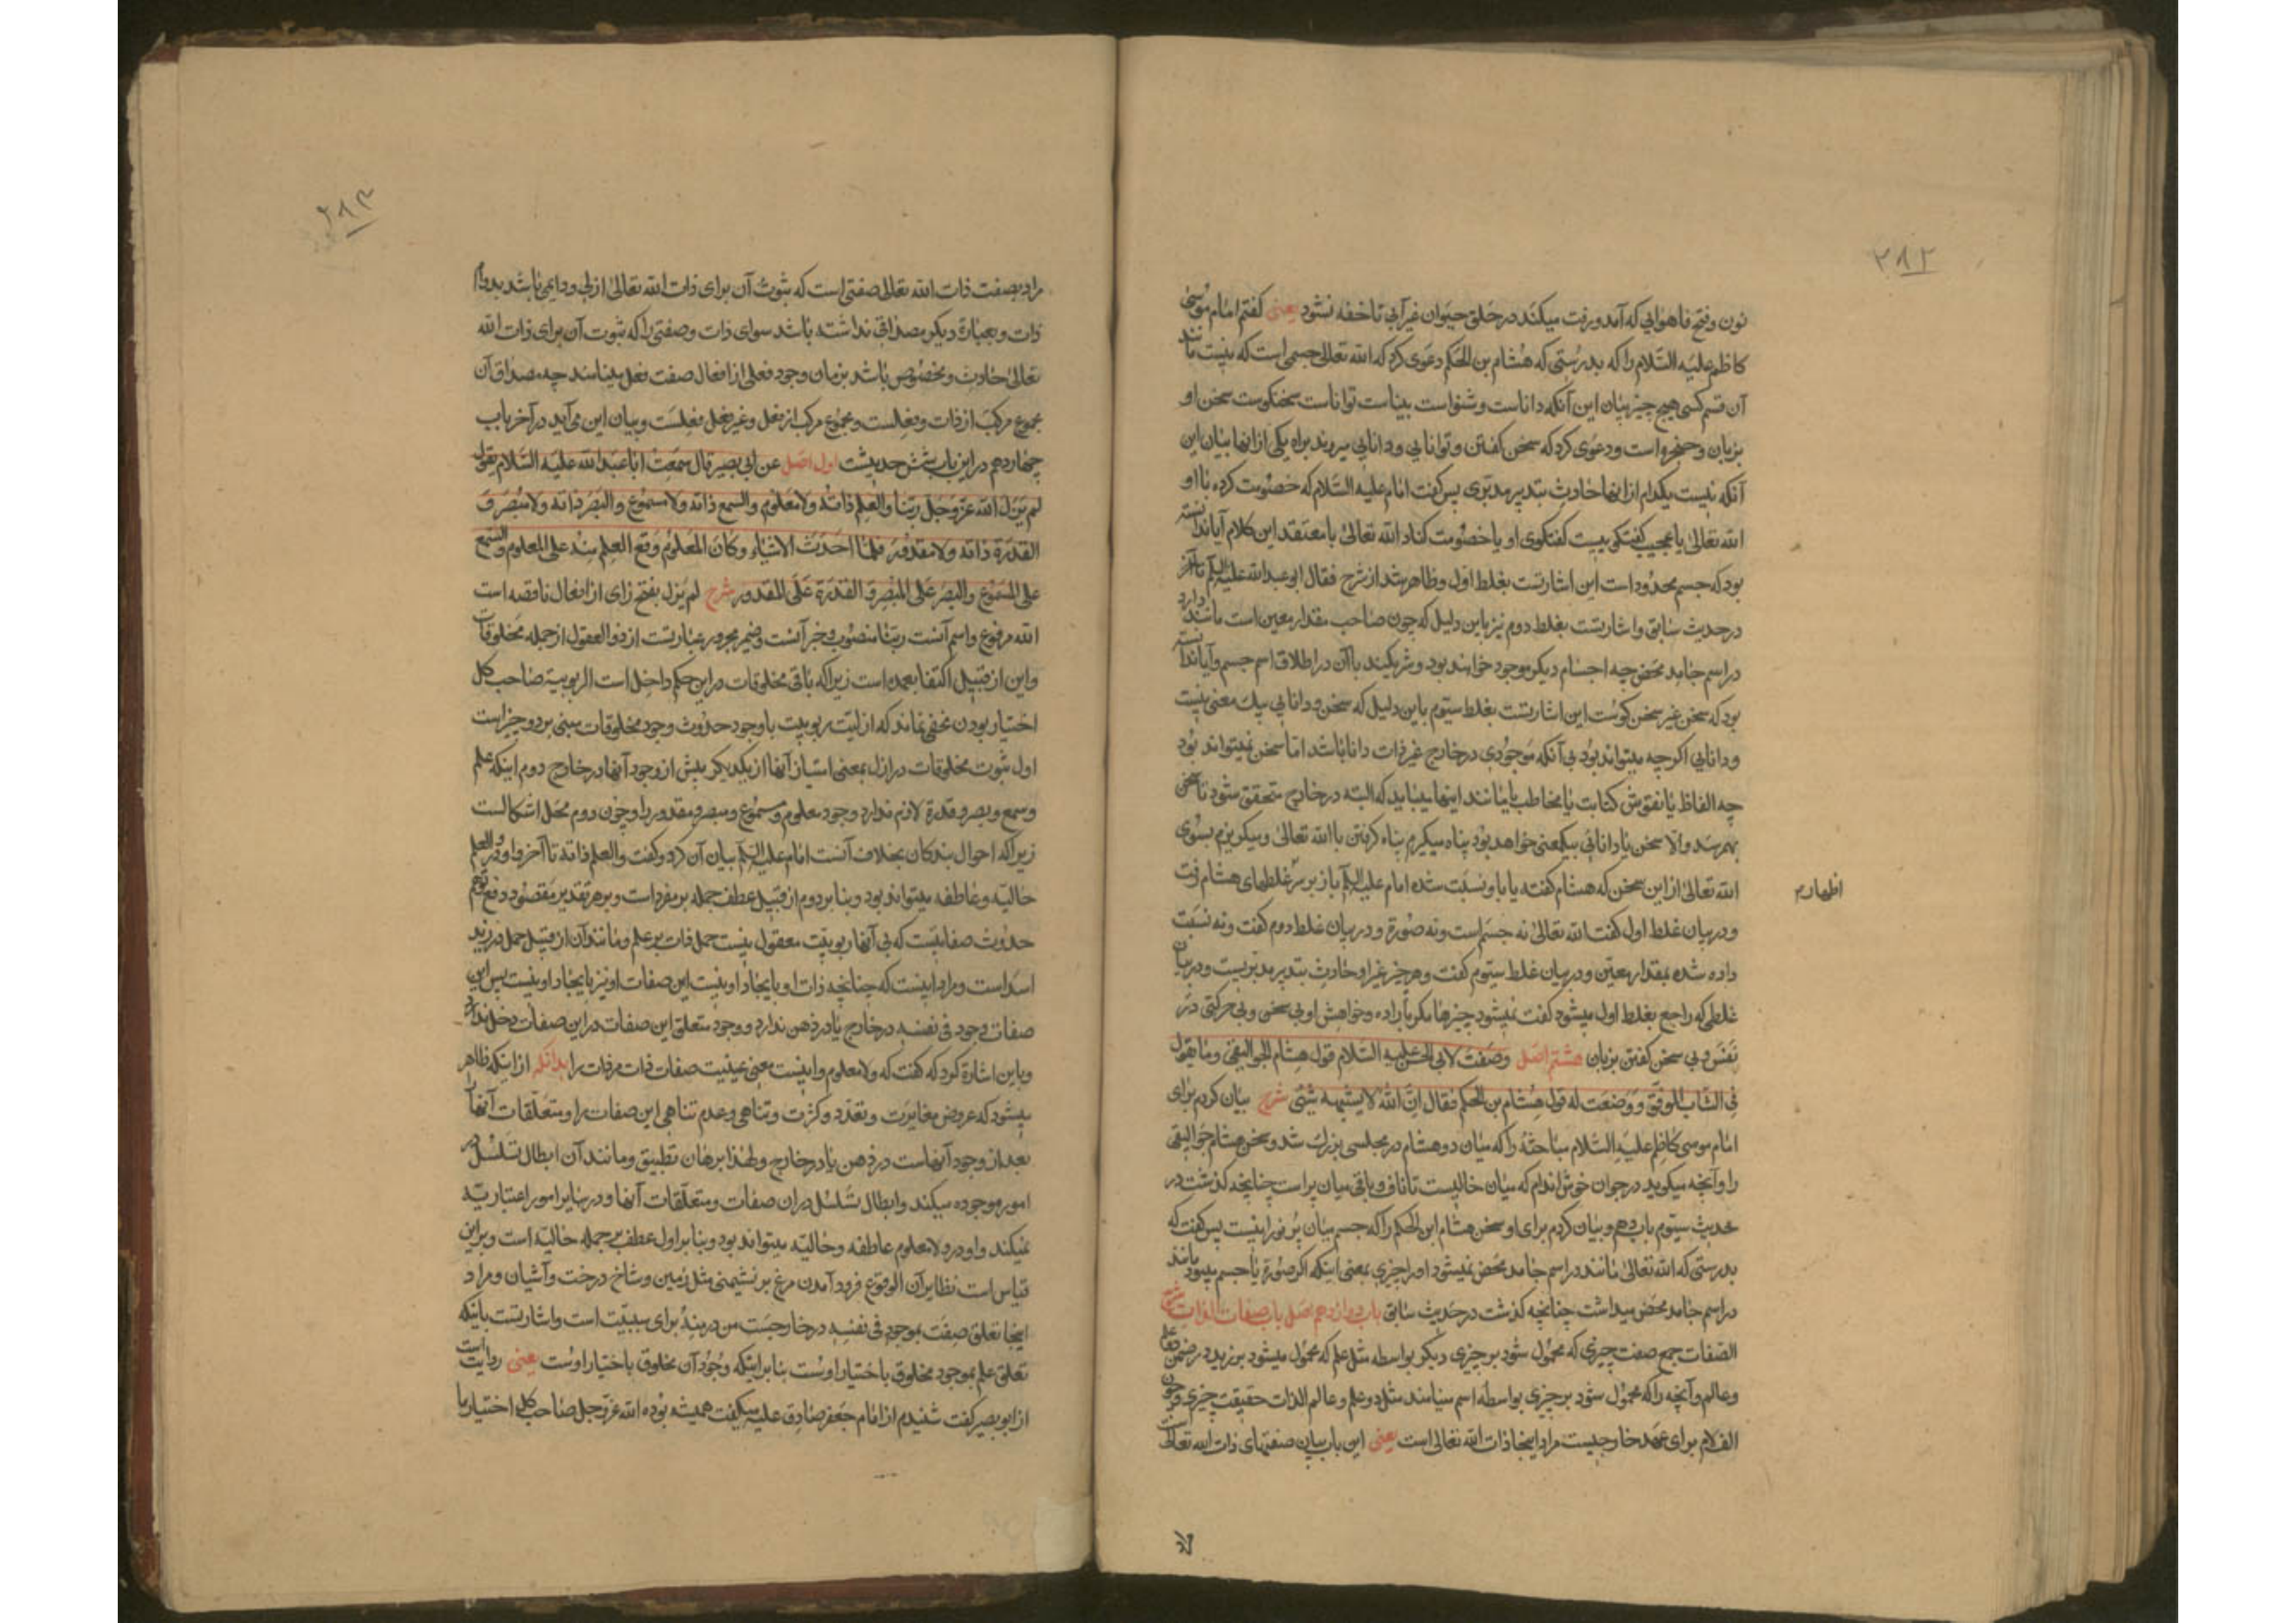 ۲۸۲
نون وفتح فا هوایی که آمد ورفت میکند در حلق حیوان غیر آبی تا خفه نشود یعنی کفتم امام موسی
کاظم علیه السلام را که بدرستی که هشام بن الحکم دعوی کرد که الله تعالی جسمی است که نیست مانند
آن قسم کسی هیچ چیز بیان این آنکه داناست وشنواست بیناست تواناست سخنکوست سخن او
بزبان وحنجره است ودعوی کرد که سخن کفتن وتوانایی ودانایی میروند براه یکی از اینها بیان این
آنکه نیست یکدام از اینها حادث بتدبیر مدبری پس کفت امام علیه السلام که خصومت کرده با او
الله تعالی یا عجیب کفتکوییست کفتکوی او یا خصومت کناد الله تعالی با معتقد این کلام آیا ندانسته
بود که جسم محدود است این اشارتست بغلط اول وظاهر شد از شرح فقال ابو عبد الله علیه السلام تا آخر
در حدیث سابق واشارتست بغلط دوم نیز باین دلیل که چون صاحب مقدار معین است مانند دارد
در اسم جامد محض چه اجسام دیکر موجود خواهند بود وشریکند با آن در اطلاق اسم جسم وآیا ندانسته
بود که سخن غیر سخن کوست این اشارتست بغلط سیوم باین دلیل که سخن ودانایی بیک معنی نیست
ودانایی اکرچه میتواند بود بی آنکه موجودی در خارج غیر ذات دانا باشد اما سخن نمیتواند بود
چه الفاظ یا نقوش کتابت یا مخاطب یا مانند اینها میباید که البته در خارج متحقق شود تا سخن
بهمرسد والا سخن با دانایی بیکمعنی خواهد بود پناه میکیرم پناه کرفتن با الله تعالی ومیکریزم بسوی
الله تعالی از این سخن که هشام کفته یا باو نسبت شده امام علیه السلام باز بر سر غلطهای هشام رفت
اظهارم
ودر بیان غلط اول کفت الله تعالی نه جسم است ونه صورة ودر بیان غلط دوم کفت ونه نسبت
داده شده بمقدار معین ودر بیان غلط سیوم کفت وهر چیز غیر او حادث بتدبیر مدبریست ودر بیان
غلطی که راجع بغلط اول میشود کفت نمیشود چیزها مکر باراده وخواهش او بی سخن وبی حرکتی در
نفس وبی سخن کفتن بزبان هشتم اصل وصفت لابی الحسن علیه السلام قول هشام الجوالیقی وما یقول
فی الشاب الموفق ووصفت له قول هشام بن الحکم فقال ان الله لا یشبهه شیء شرح بیان کردم برای
امام موسی کاظم علیه السلام مباحثه را که میان دو هشام در مجلسی بزرک شد وسخن هشام جوالیقی
را وآنچه میکوید در جوان خوش اندام که میان خالیست تا ناف وباقی میان پر است چنانچه کذشت در
حدیث سیوم باب دهم وبیان کردم برای او سخن هشام ابن الحکم را که جسم میان پر نورانیست پس کفت که
بدرستی که الله تعالی مانند در اسم جامد محض نمیشود او را چیزی بمعنی اینکه اکر صورة یا جسم میبود مانند
در اسم جامد محض میداشت چنانچه کذشت در حدیث سابق باب دوازدهم اصل باب صفات الذات شرح
الصفات جمع صفت چیزی که محمول شود بر چیزی دیکر بواسطه مثل علم که محمول میشود بر زید در ضمن
وعالم وآنچه را که محمول شود بر چیزی بواسطه اسم مینامند مثل ذو علم وعالم الذات حقیقت چیزی
الف لام برای عهد خارجیست مراد اینجا ذات الله تعالی است یعنی این باب بیان صفتهای ذات الله تعالی است
۲۸۳
مراد بصفت ذات الله تعالی صفتی است که ثبوت آن برای ذات الله تعالی ازلی ودایمی باشد بدوام
ذات وبعبارة دیکر مصداقی نداشته باشد سوای ذات وصفتی را که ثبوت آن برای ذات الله
تعالی حادث ومخصوص باشد بزمان وجود فعلی از افعال صفت فعل مینامند چه مصداق آن
مجموع مرکب از ذات وفعلست ومجموع مرکب از فعل وغیر فعل فعلست وبیان این می آید در آخر باب
چهاردهم در این باب شش حدیثست اول اصل عن ابی بصیر قال سمعت ابا عبد الله علیه السلام یقول
لم یزل الله عز وجل ربنا والعلم ذاته ولا معلوم والسمع ذاته ولا مسموع والبصر ذاته ولا مبصر و
القدرة ذاته ولا مقدور فلما احدث الاشیاء وکان المعلوم وقع العلم منه علی المعلوم والسمع
علی المسموع والبصر علی المبصر والقدرة علی المقدور شرح لم یزل بفتح زای از افعال ناقصه است
الله مرفوع واسم آنست ربنا منصوب وخبر آنست وضمیر مجرور عبارتست از ذو العقول از جمله مخلوقات
واین از قبیل اکتفا بعمده است زیرا که باقی مخلوقات در این حکم داخل است الربوبیة صاحب کل
اختیار بودن مخفی نماند که ازلیت ربوبیت با وجود حدوث وجود مخلوقات مبنی بر دو چیز است
اول ثبوت مخلوقات در ازل بمعنی امتیاز آنها از یکدیکر پیش از وجود آنها در خارج دوم اینکه علم
وسمع وبصر وقدرة لازم ندارد وجود معلوم ومسموع ومبصر ومقدور را وچون دوم محل اشکالست
زیرا که احوال بندکان بخلاف آنست امام علیه السلام بیان آن کرد وکفت والعلم ذاته تا آخر واو در والعلم
حالیه وعاطفه میتواند بود وبنا بر دوم از قبیل عطف جمله بر مفرد است وبر هر تقدیر مقصود دفع توهم
حدوث صفاتیست که بی آنها ربوبیت معقول نیست حمل ذات بر علم ومانند آن از قبیل حمل در زید
اسد است ومراد اینست که چنانچه ذات او بایجاد او نیست این صفات او نیز بایجاد او نیست پس این
صفات وجود فی نفسه در خارج یا در ذهن ندارد ووجود متعلق این صفات در این صفات دخل ندارد
وباین اشاره کرد که کفت که ولا معلوم واینست معنی عینیت صفات ذات مر ذات را بدانکه از اینکه ظاهر
میشود که عروض مغایرت وتعدد وکثرت وتناهی وعدم تناهی این صفات را ومتعلقات آنها را
بعد از وجود آنهاست در ذهن یا در خارج ولهذا برهان تطبیق ومانند آن ابطال تسلسل در
امور موجوده میکند وابطال تسلسل در ان صفات ومتعلقات آنها ودر سایر امور اعتباریه
نمیکند واو در ولا معلوم عاطفه وحالیه میتواند بود وبنا بر اول عطف بر جمله حالیه است وبر این
قیاس است نظایر آن الوقوع فرود آمدن مرغ بر نشیمنی مثل زمین وشاخ درخت وآشیان ومراد
اینجا تعلق صفت بموجود فی نفسه در خارجست من در منه برای سببیت است واشارتست باینکه
تعلق علم بموجود مخلوق باختیار اوست بنا بر اینکه وجود آن مخلوق باختیار اوست یعنی روایت است
از ابو بصیر کفت شنیدم از امام جعفر صادق علیه السلام میکفت همیشه بوده الله عز وجل صاحب کل اختیار ما